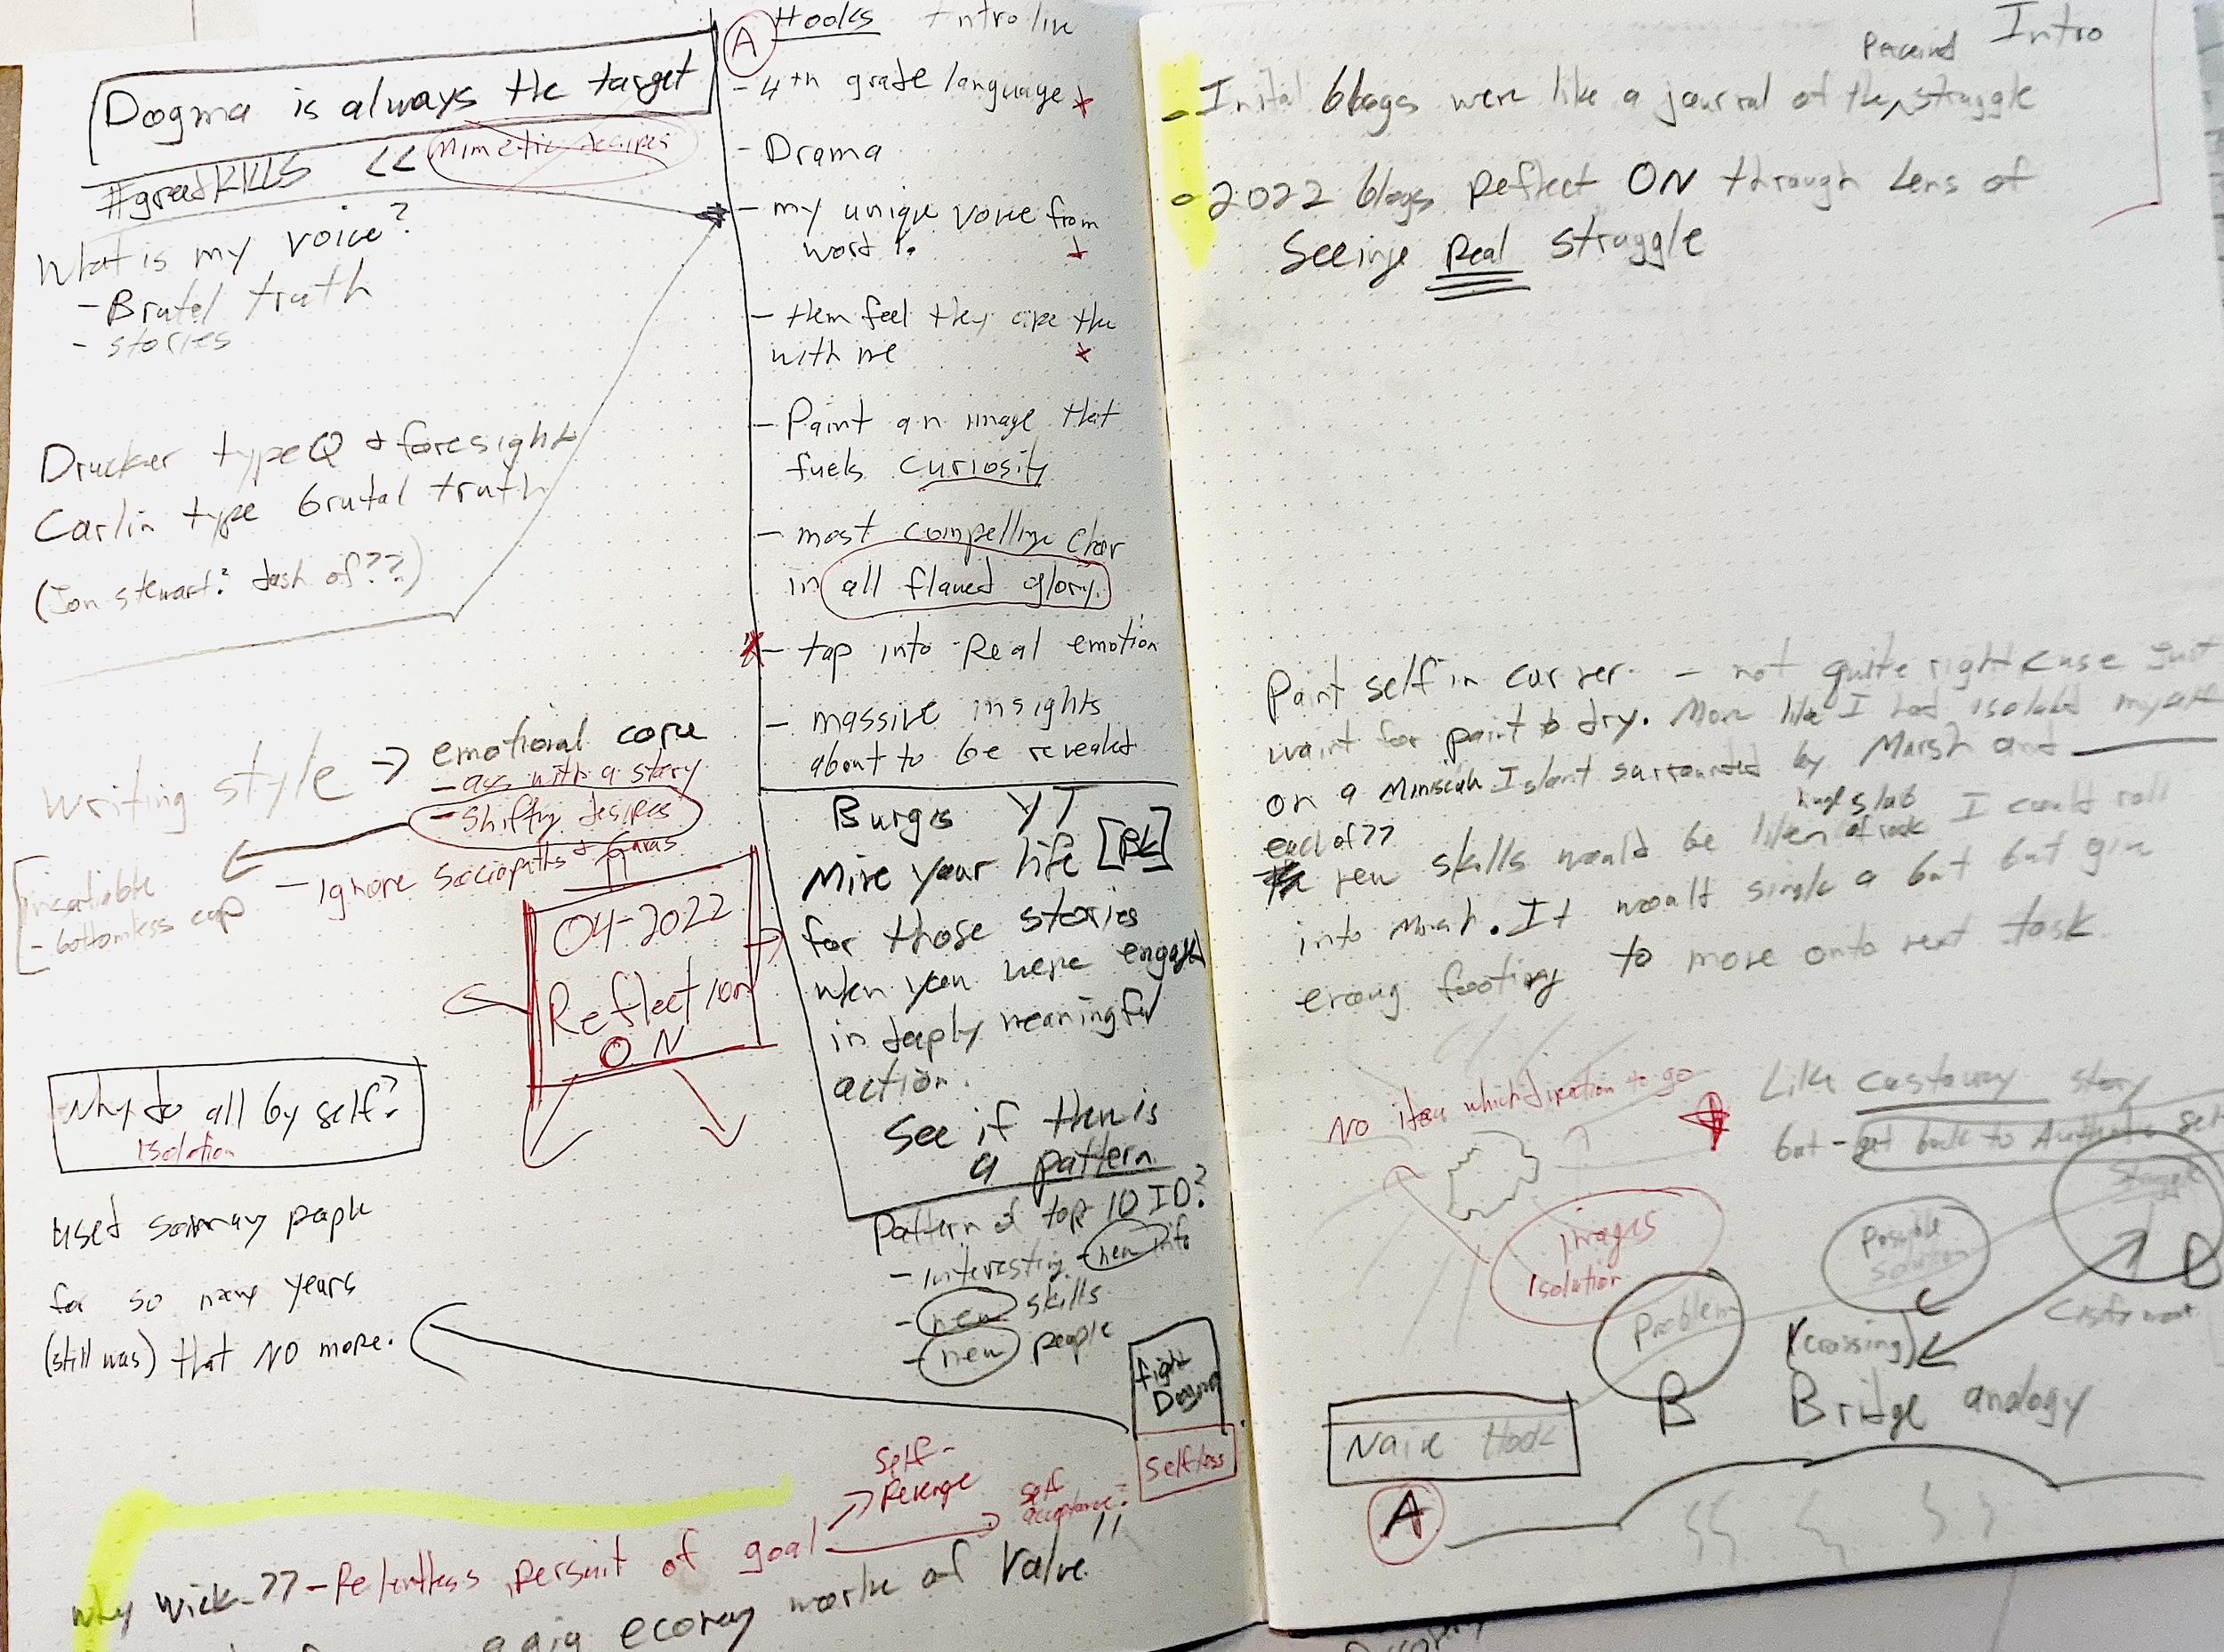 Dogma is always the target
#greedKILLS << Mimetic desires
What is my voice?
- Brutal truth
- stories
Drucker type Q & foresight
Carlin type brutal truth
(Jon Stewart? dash of??)
writing style → emotional core
- ass with a story
- Shifting desires
- Ignore Sociopaths +
insatiable
- bottomless cup
04-2022
Reflection
ON
Why do all by self?
Isolation
used so many people
for so many years
(still was) that NO more.
Self-
Revenge
Self
acceptance?
why Wick-?? - Relentless persuit of goal
gig economy worke of Value"
A
Hooks Intro line
- 4th grade language
- Drama
- my unique voice from
word 1.
- them feel they are the
with me
- Paint an image that
fuels curiosity
- most compelling char
in all flawed glory.
- tap into Real emotion
- massive insights
about to be revealed
Burgis YT
Mine your life [BK]
for those stories
when you were engaged
in deeply meaningful
action.
See if then is
a pattern
Pattern of top 10 ID?
- interesting - new info
- new skills
- new people
fight
Dogma
selfless
Intro
Perceived
- Inital blogs were like a journal of the struggle
2022 blogs Reflect ON through Lens of
Seeinge Real struggle
Paint self in corner - not quite right cuse just
waint for paint to dry. More like I had isolated myself
on a Miniscule Island surrounded by Marsh and
each of ?? new skills would be liken huge slab of rock I could roll
into Marsh. It would single a bit but give
enoug footing to move onto next task
No idea which direction to go
Like Castaway story
but - get back to Authentic self
images
isolation
Possible
Solution
Struggle
D
Problem
B
(crossing)
Bridge analogy
Naive Hook
A